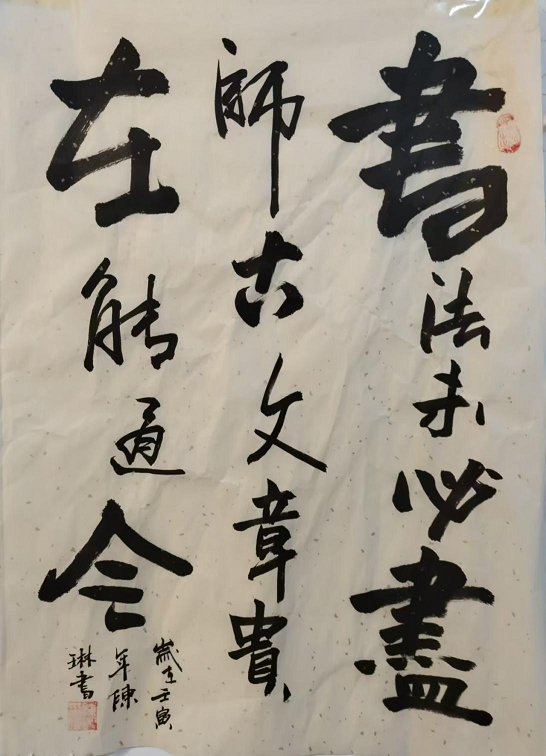 書法未必盡
師古文章貴
在能通今
歲在壬寅
年陳
琳書